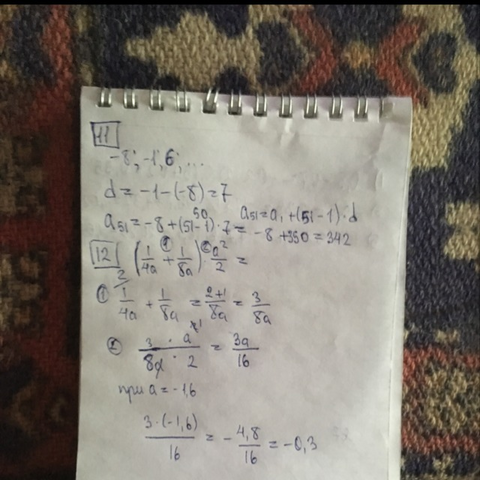 11
-8; -1; 6; ...
d = -1-(-8) = 7
a₅₁ = a₁ + (51-1)·d
50
a₅₁ = -8 + (51-1)·7 = -8 + 350 = 342
12 (1/4a + 1/8a) · a²/2 =
① 1/4a + 1/8a = 2+1/8a = 3/8a
② 3 · a²/8a · 2 = 3a/16
при a = -1,6
3·(-1,6)/16 = -4,8/16 = -0,3